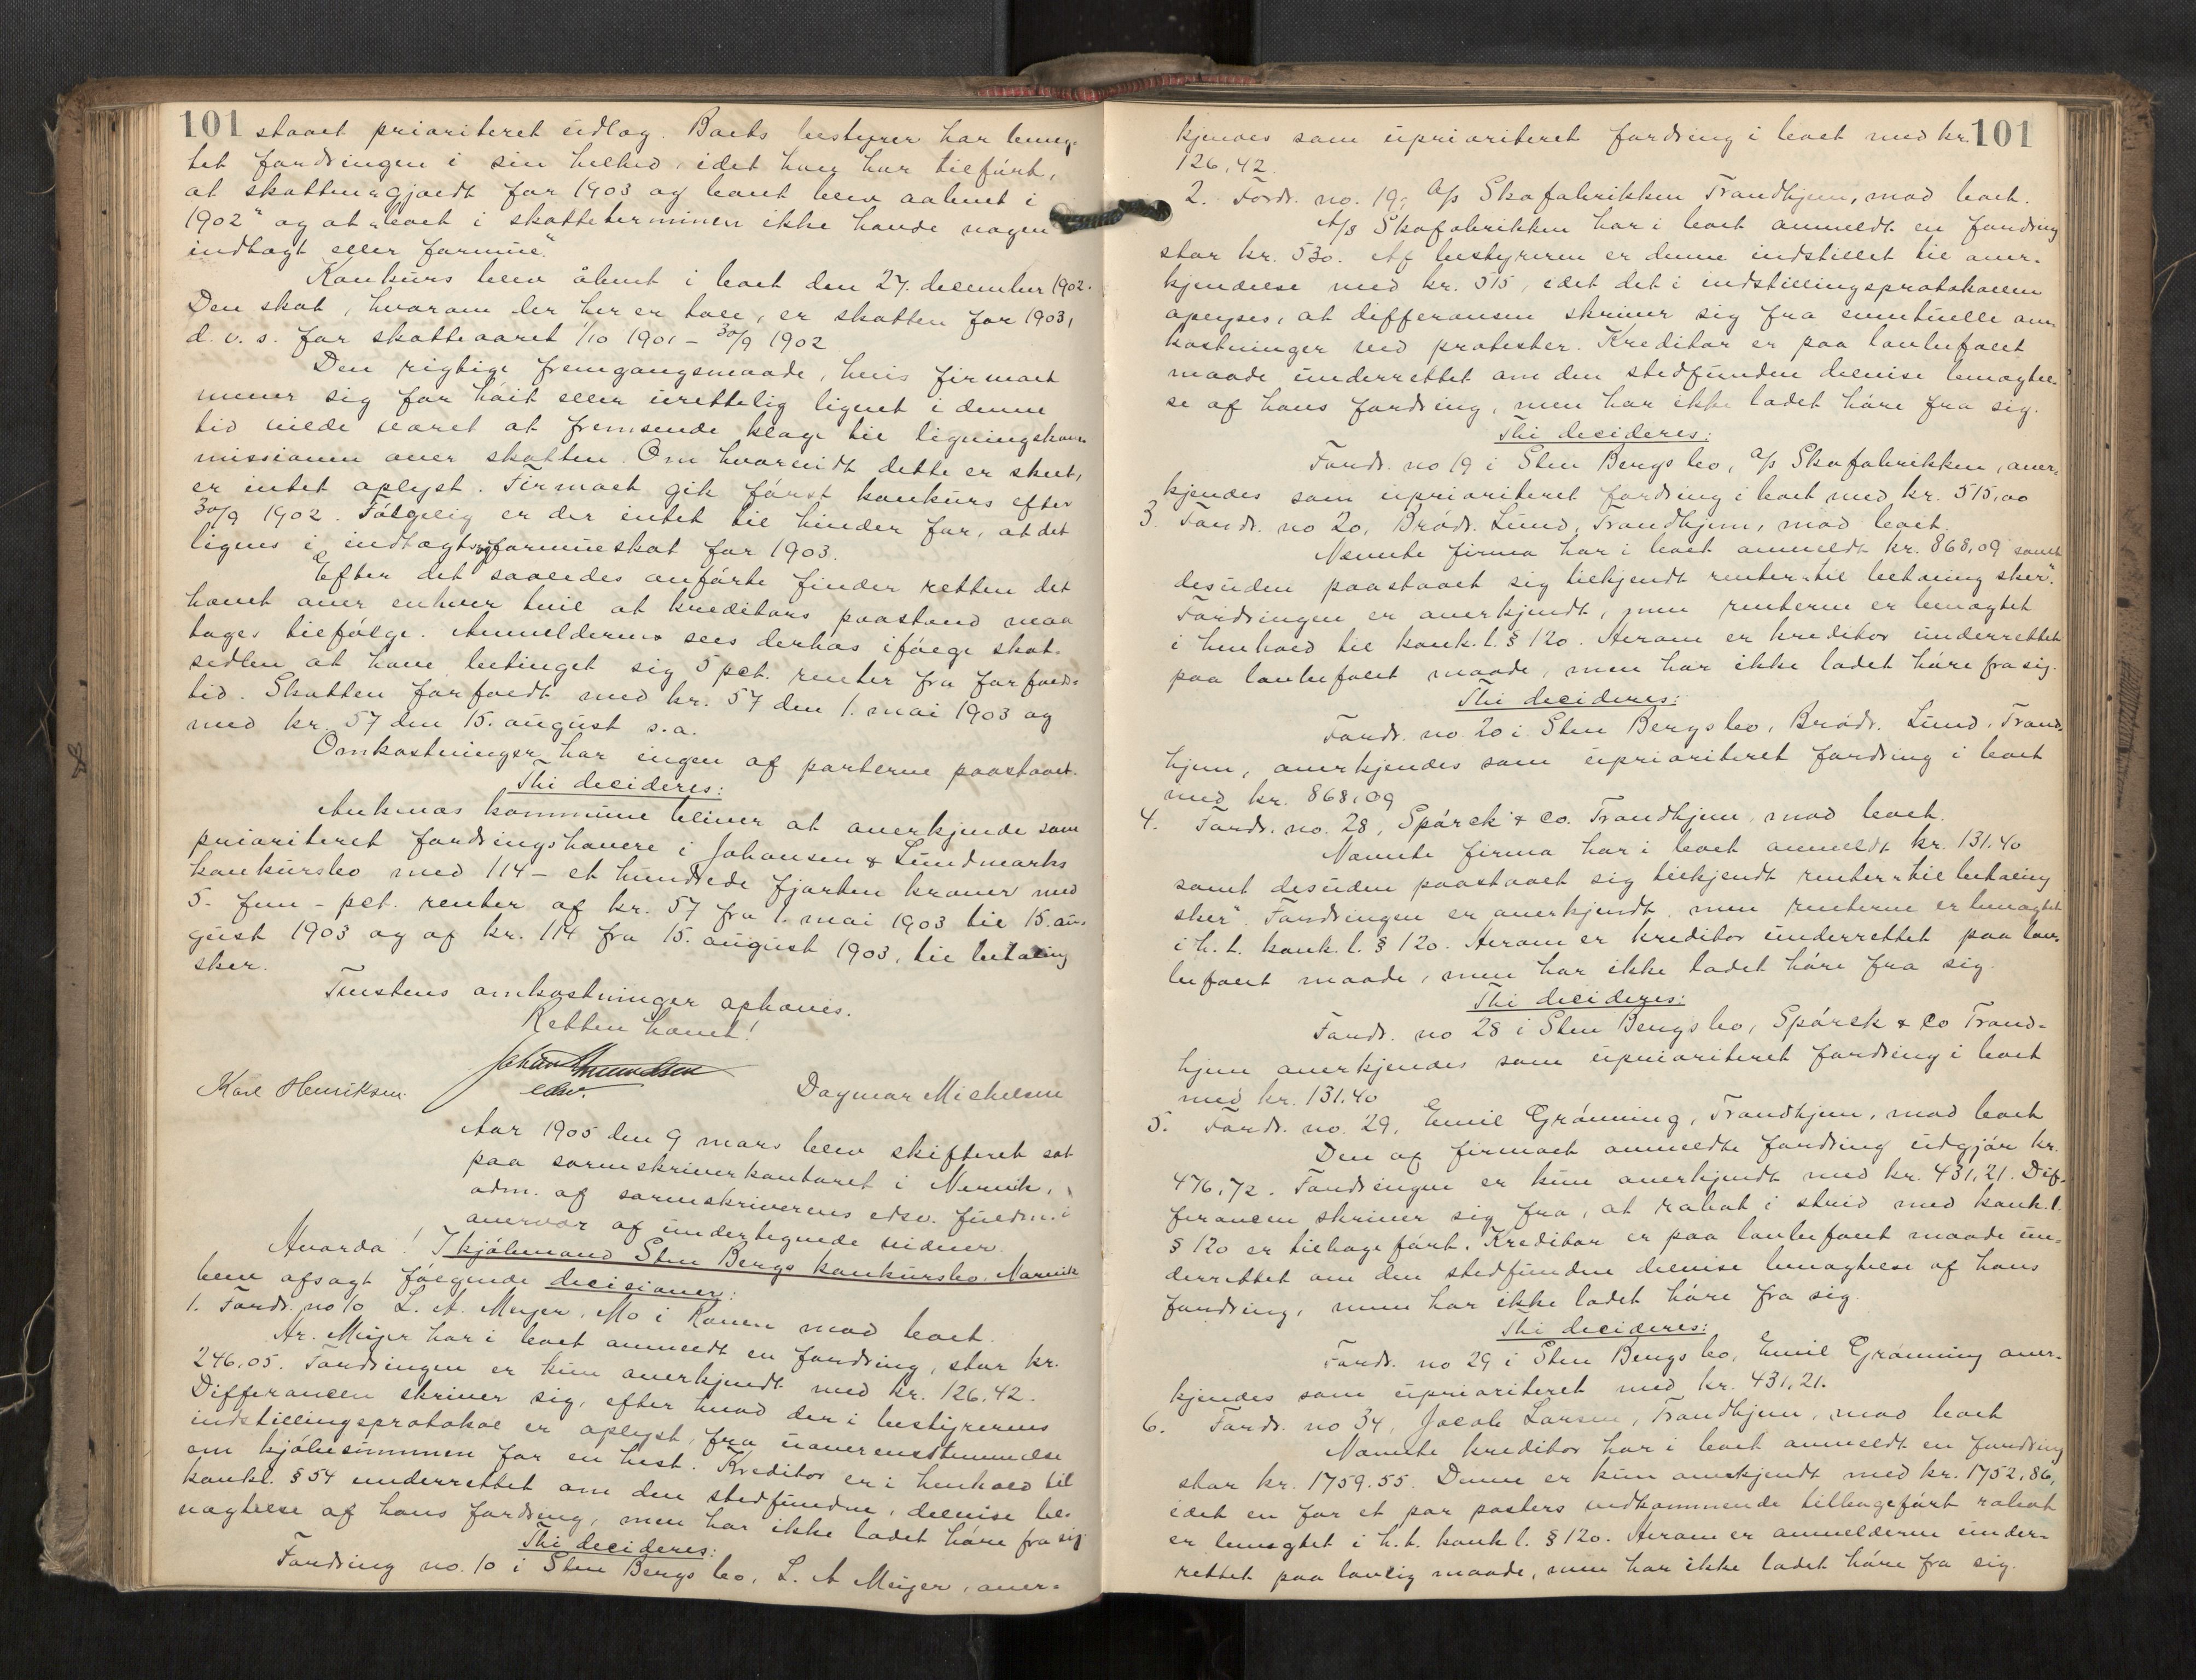 101 staaet prioriteret udlæg. Boets bestyrer har benæg-
tet fordringen i sin helhed, idet han har tilført,
at skatten „gjaldt for 1903 og boet blev aabnet i
1902" og at „boet i skatteterminen ikke havde nogen
indtægt eller formue".
Konkurs blev åbnet i boet den 27. december 1902.
Den skat, hvorom der her er tale, er skatten for 1903,
d. v. s. for skatteaaret 1/10 1901 – 30/9 1902
Den rigtige fremgangsmaade, hvis firmaet
mener sig for høit eller urettelig lignet i denne
tid vilde været at fremsende klage til ligningskom-
missionen over skatten. Om hvorvidt dette er skeet,
er intet oplyst. Firmaet gik først konkurs efter
30/9 1902. Følgelig er der intet til hinder for, at det
lignes i indtægts og formueskat for 1903.
Efter det saaledes anførte finder retten det
hævet over enhver tvil at kreditors paastand maa
tages tilfølge. Anmelderen sees derhos ifølge skat-
sedlen at have betinget sig 5 pct. renter fra forfalds-
tid. Skatten forfaldt med kr. 57 den 1. mai 1903 og
med kr. 57 den 15. august s.a.
Omkostninger har ingen af parterne paastaaet.
Thi decideres:
Ankenæs kommune bliver at anerkjende som
prioriteret fordringshavere i Johansen & Lundmarks
konkursbo med 114 – et hundrede fjorten kroner med
5 – fem – pct. renter af kr. 57 fra 1. mai 1903 til 15. au-
gust 1903 og af kr. 114 fra 15. august 1903, til betaling
sker.
Tvistens omkostninger ophæves.
Retten hævet!
Johan Amundsen
edsv.
Karl Henriksen. Dagmar Michelsen
Aar 1905 den 9 mars blev skifteret sat
paa sorenskriverkontoret i Narvik,
adm. af sorenskriverens edsv. fuldm. i
overvær af undertegnede vidner.
Hvorda! I kjøbmand Sten Bergs konkursbo, Narvik
blev afsagt følgende decisioner:
1. Fordr. no 10 L. A. Meyer, Mo i Ranen mod boet.
Hr. Meyer har i boet anmeldt en fordring, stor kr.
246.05. Fordringen er kun anerkjendt med kr. 126.42.
Differancen skriver sig, efter hvad der i bestyrerens
indstillingsprotokol er oplyst, fra uoverensstemmelse
om kjøbesummen for en hest. Kreditor er i henhold til
konkl. § 54 underrettet om den stedfundne, delvise be-
nægtelse af hans fordring, men har ikke ladet høre fra sig
Thi decideres:
Fordring no. 10 i Sten Bergs bo, L. A Meyer, aner-
kjendes som uprioriteret fordring i boet med kr. 101
126,42.
2. Fordr. no. 19, A/s Skofabrikken Trondhjem, mod boet.
A/s Skofabrikken har i boet anmeldt en fordring
stor kr. 530. Af bestyreren er denne indstillet til aner-
kjendelse med kr. 515, idet det i indstillingsprotokollen
oplyses, at differansen skriver sig fra eventuelle om-
kostninger ved protester. Kreditor er paa lovbefalet
maade underrettet om den stedfunden delvise benægtel-
se af hans fordring, men har ikke ladet høre fra sig.
Thi decideres:
Fordr. no 19 i Sten Bergs bo, A/s Skofabrikken, aner-
kjendes som uprioriteret fordring i boet med kr. 515,00
3. Fordr. no 20, Brødr. Lund, Trondhjem, mod boet.
Nævnte firma har i boet anmeldt kr. 868,09 samt
desuden paastaaet sig tilkjendt renter „til betaling sker".
Fordringen er anerkjendt, men renterne er benægtet
i henhold til konk. l. § 120. Herom er kreditor underrettet
paa lovbefalet maade, men har ikke ladet høre fra sig.
Thi decideres:
Fordr. no 20 i Sten Bergs bo, Brødr. Lund, Trond-
hjem, anerkjendes som uprioriteret fordring i boet
med kr. 868,09
4. Fordr. no. 28, Spørck & Co. Trondhjem, mod boet.
Nævnte firma har i boet anmeldt kr. 131.40
samt desuden paastaaet sig tilkjendt renter „til betaling
sker". Fordringen er anerkjendt, men renterne er benægtet
i h. t. konk. l. § 120. Herom er kreditor underrettet paa lov-
befalet maade, men har ikke ladet høre fra sig.
Thi decideres:
Fordr. no 28 i Sten Bergs bo, Spørck & Co Trond-
hjem anerkjendes som uprioriteret fordring i boet
med kr. 131.40
5. Fordr. no. 29, Emil Grønning, Trondhjem, mod boet
Den af firmaet anmeldte fordring udgjør kr.
476,72. Fordringen er kun anerkjendt med kr. 431,21. Dif-
ferancen skriver sig fra, at rabat i strid med konk. l.
§ 120 er tilbageført. Kreditor er paa lovbefalet maade un-
derrettet om den stedfundne delvise benægtelse af hans
fordring, men har ikke ladet høre fra sig.
Thi decideres:
Fordr. no 29 i Sten Bergs bo, Emil Grønning aner-
kjendes som uprioriteret med kr. 431,21.
6. Fordr. no 34, Jacob Larsen, Trondhjem, mod boet
Nævnte kreditor har i boet anmeldt en fordring
stor kr. 1759.55. Denne er kun anerkjendt med kr. 1752,86,
idet en for et par posters vedkommende tilbageført rabat
er benægtet i h. t. konk l. § 120. Herom er anmelderen under-
rettet paa lovlig maade, men har ikke ladet høre fra sig.